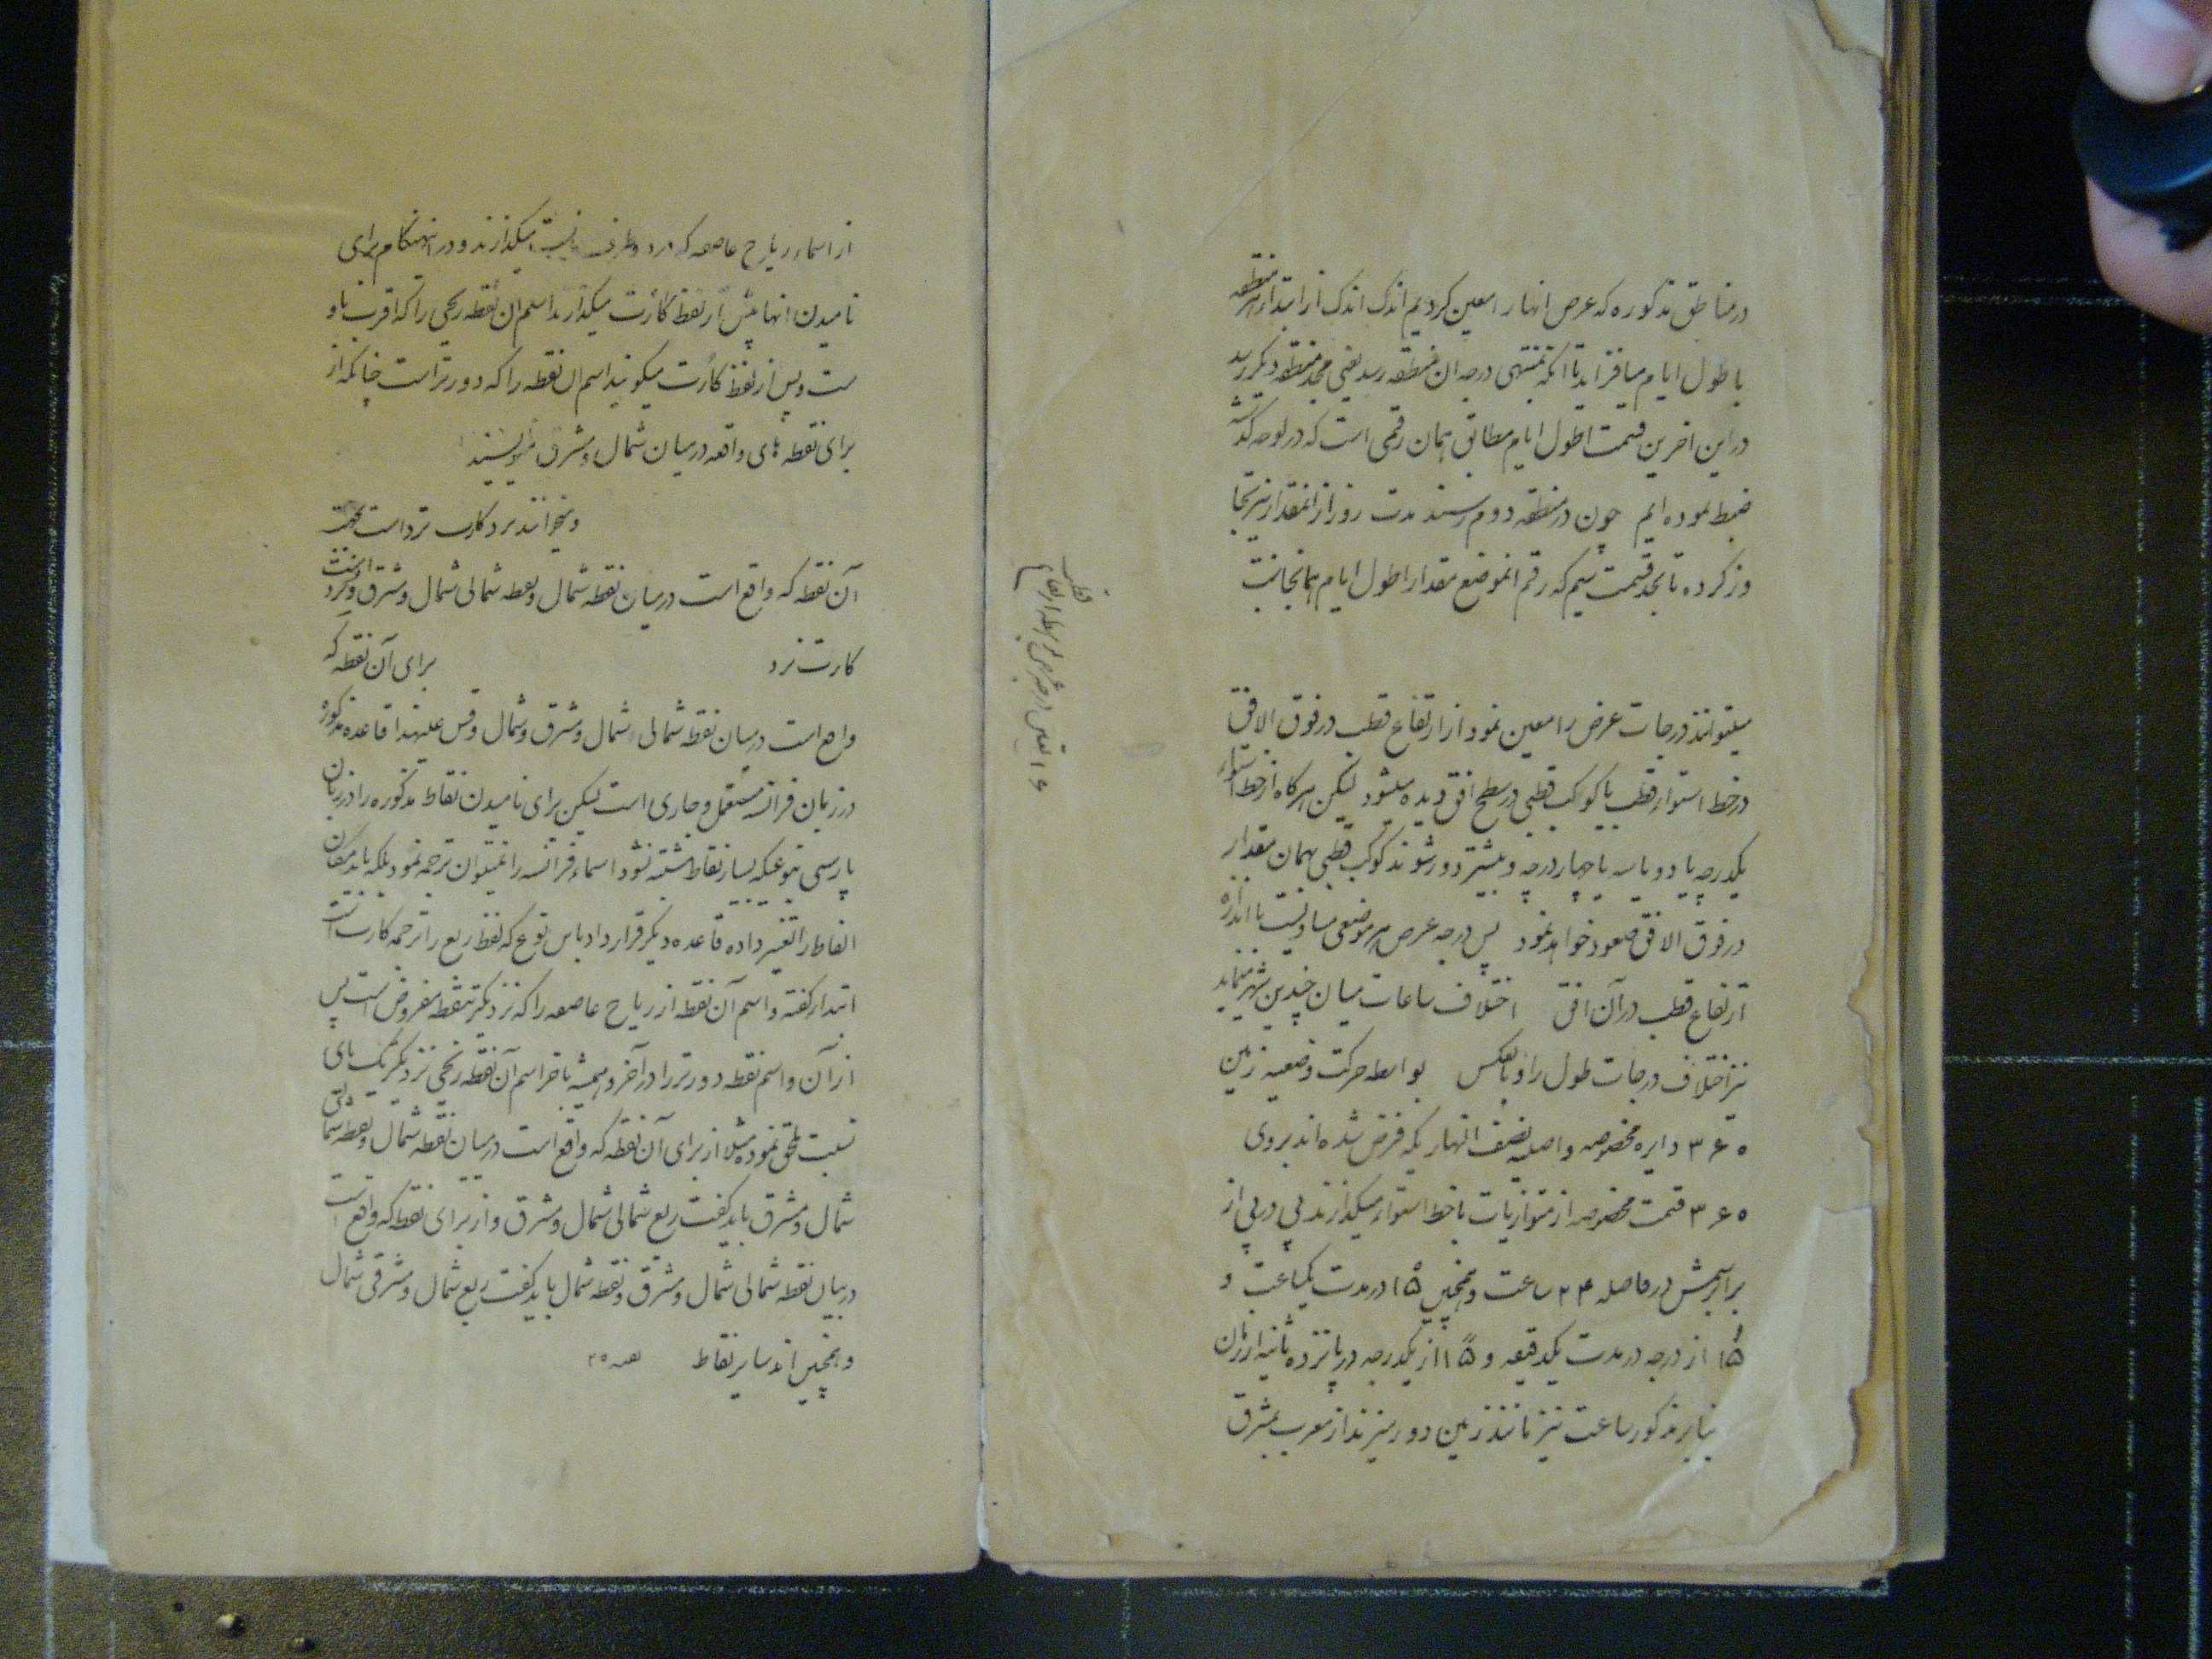 در مناطق مذکوره که عرض انها را معین کردیم اندک اندک از ابتداء هر منطقه
با طول ایام میافزاید تا انکه بمنتهی درجه ان منطقه رسد یعنی بحد منطقه دیگر رسد
در این اخرین قیمت اطول ایام مطابق همان رقمی است که در لوحه گذشته
ضبط نموده ایم چون در منطقه دوم رسند مدت روز از انمقدار نیز تجا
وز کرده تا بحد قسمت سیم که رقم انموضع مقدار اطول ایام همانجانب
میتوانند درجات عرض را معین نمود از ارتفاع قطب در فوق الافق
در خط استواء قطب یا کوکب قطبی در سطح افق دیده میشود لیکن هرگاه از خط استواء
یکدرجه یا دو یا سه یا چهار درجه و بیشتر دور شوند کوکب قطبی بهمان مقدار
در فوق الافق صعود خواهد نمود پس درجه عرض هر موضعی مساویست با اندازه
ارتفاع قطب در آن افق اختلاف ساعات میان چندین شهر مینماید
نیز اختلاف درجات طول را و بالعکس بواسطه حرکت وضعیه زمین
۳۶۰ دایره مخصوصه و اصلیه نصف النهار یکه فرض شده اند بروی
۳۶۰ قسمت مخصوصه از متوازیات با خط استواء میگذرند پی در پی از
برابر شمش در فاصله ۲۴ ساعت و همچنین ۱۵ در مدت یکساعت و
۱۵ از درجه در مدت یکدقیقه و ۱۵ از یکدرجه در پانزده ثانیه از زمان
بنابر مذکور ساعت نیز مانند زمین دور میزند از مغرب بمشرق
۱۶ تعیین درجه عرض بواسطه ارتفاع قطب
از اسماء ریاح عاصفه که در دو طرف نیست میگذارند و در اینهنگام برای
نامیدن انها پیش از لفظ کارت میگذارند اسم ان نقطه ریحی را که اقرب باو
ست و پس از لفظ کارت میگویند اسم ان نقطه را که دورتر است چنانکه از
برای نقطه های واقعه در میان شمال و مشرق مینویسند
و میخوانند برد کارت نرد است بجهت
آن نقطه که واقع است در میان نقطه شمال و نقطه شمالی شمال و مشرق و نرد است
کارت نرد برای آن نقطه که
واقع است در میان نقطه شمالی شمال و مشرق و شمال و قس علیهذا قاعده مذکوره
در زبان فرانسه مستعمل و جاری است لیکن برای نامیدن نقاط مذکوره را در زبان
پارسی بنوعیکه بسایر نقاط مشتبه نشود اسماء فرانسه را نمیتوان ترجمه نمود بلکه باید مکان
الفاظ را تغییر داده قاعده دیگر قرار داد باین نوع که لفظ ربع را ترجمه کارت است
ابتدا گفته و اسم آن نقطه از ریاح عاصفه را که نزدیکتر بنقطه مفروض است پس
از آن و اسم نقطه دورتر را در آخر و همیشه باخر اسم آن نقطه ریحی نزدیکتر یک یای
نسبت ملحق نموده مثلا از برای آن نقطه که واقع است در میان نقطه شمال و نقطه شمالی
شمال و مشرق باید گفت ربع شمالی شمال و مشرق و از برای نقطه که واقع است
در میان نقطه شمالی شمال و مشرق و نقطه شمال باید گفت ربع شمال و مشرقی شمال
و همچنین اند سایر نقاط